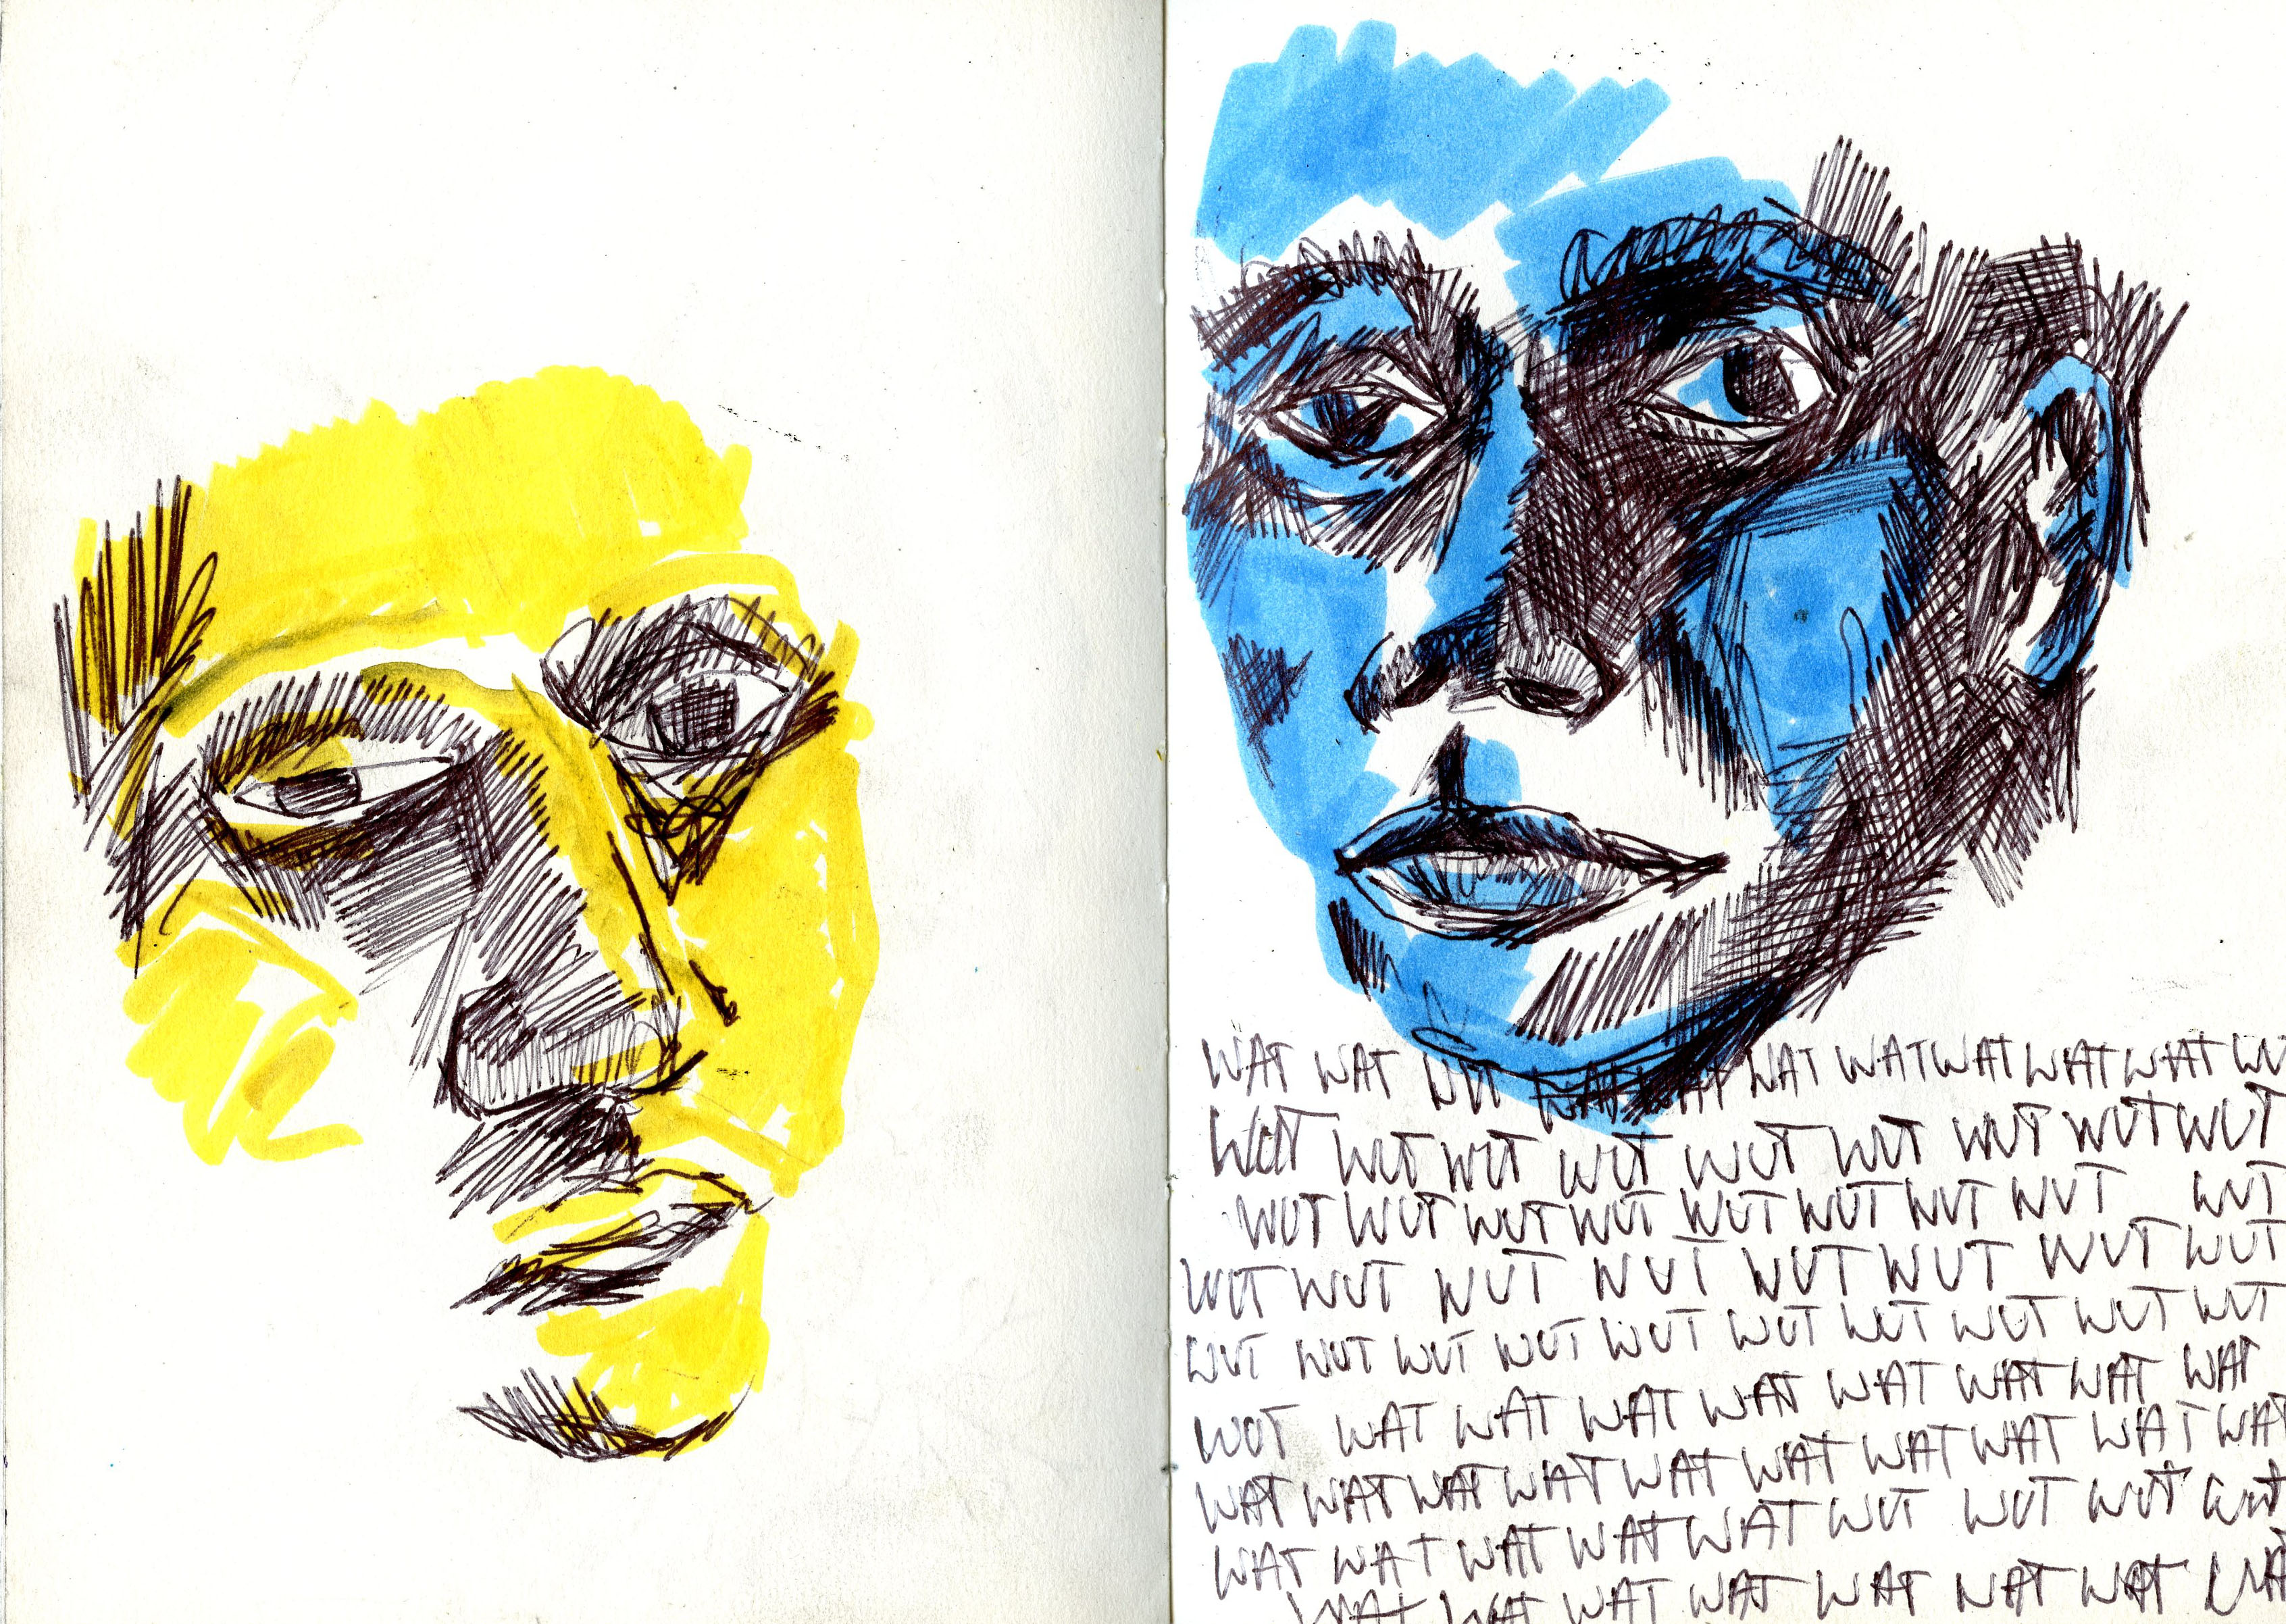 WAT WAT WUT WAT WAT WAT WAT WAT WAT WAT
WUT WUT WUT WUT WUT WUT WUT WUT WUT
WUT WUT WUT WUT WUT WUT WUT WUT WUT
WUT WUT WUT WUT WUT WUT WUT WUT
WUT WUT WUT WUT WUT WUT WUT WUT WUT WUT
WUT WAT WAT WAT WAT WAT WAT WAT WAT
WAT WAT WAT WAT WAT WAT WAT WAT WAT WAT
WAT WAT WAT WAT WAT WUT WUT WUT WUT
WAT WAT WAT WAT WAT WAT WAT